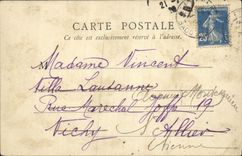 CARTE POSTALE
Ce côté est exclusivement réservé à l'adresse.
Madame Vincent
Villa Lausanne
Rue Maréchal Joffre 12
Vichy Allier
Vienne
25